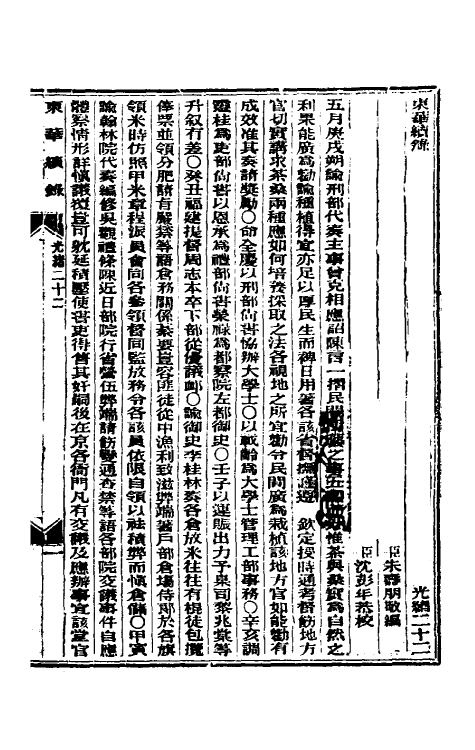 東華續錄
光緒二十二
臣朱壽朋敬編
臣沈彭年恭校
五月庚戌朔諭刑部代奏主事曾克相應詔陳言一摺民間惟茶與桑實爲自然之
利果能廣爲勸諭種植得宜亦足以厚民生而裨日用著各該省督撫遵 欽定授時通考督飭地方
官切實講求茶桑兩種應如何培養採取之法各視地之所宜勸令民間廣爲栽植該地方官如能勸有
成效准其奏請獎勵○命全慶以刑部尚書協辦大學士○以載齡爲大學士管理工部事務○辛亥調
靈桂爲吏部尚書以恩承爲禮部尚書榮祿爲都察院左都御史○壬子以運賑出力予臬司黎兆棠等
升敘有差○癸丑福建提督周志本卒下部從優議卹○諭御史李桂林奏各倉放米往往有棍徒包攬
俸票並領分肥請旨嚴禁等語倉務關係綦要豈容匪徒從中漁利致滋弊端著戶部倉場侍郎於各旗
領米時仿照甲米章程派員會同各參領督同監放務令各該員依限自領以袪積弊而慎倉儲○甲寅
諭翰林院代奏編修吳觀禮條陳近日部院行省營伍弊端請飭變通查禁等語各部院交議事件自應
體察情形詳慎議覆豈可躭延積壓使書吏得售其奸嗣後在京各衙門凡有交議及應辦事宜該堂官
東華續錄
光緒二十二
一